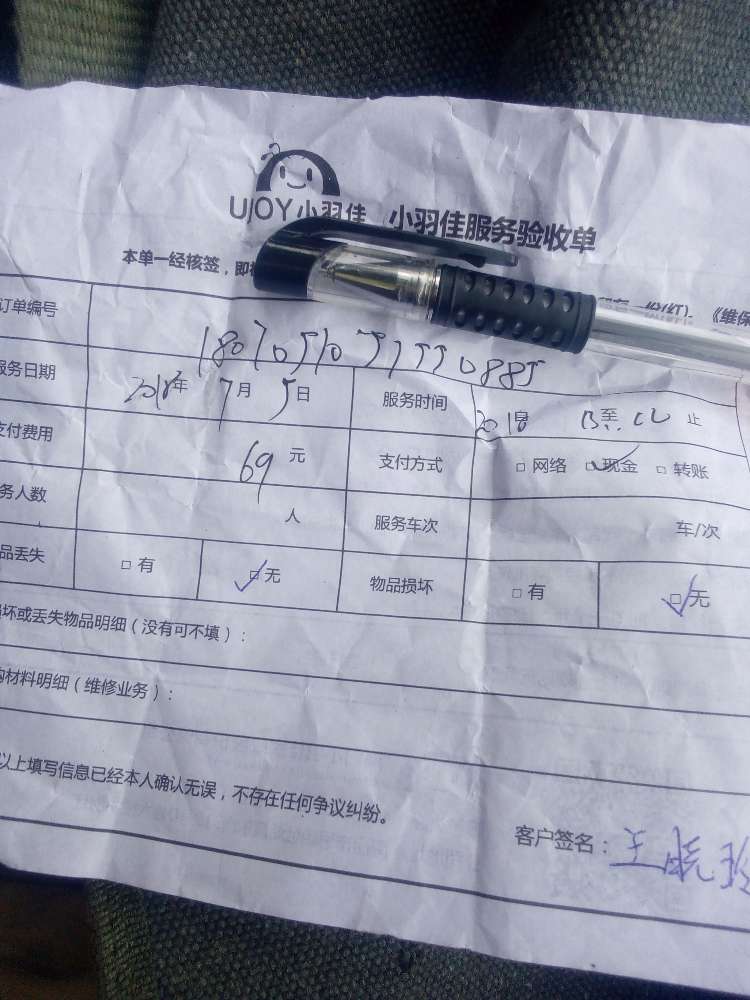 UJOY小羽佳 小羽佳服务验收单
本单一经核签，即
一份(红)。《维保
订单编号
服务日期 2018年 7月 5日 服务时间 止
支付费用 69 元 支付方式 □ 网络 ☑ 现金 □ 转账
务人数 人 服务车次 车/次
品丢失 □ 有 ☑ 无 物品损坏 □ 有 ☑ 无
损坏或丢失物品明细（没有可不填）：
购材料明细（维修业务）：
以上填写信息已经本人确认无误，不存在任何争议纠纷。
客户签名：王晓